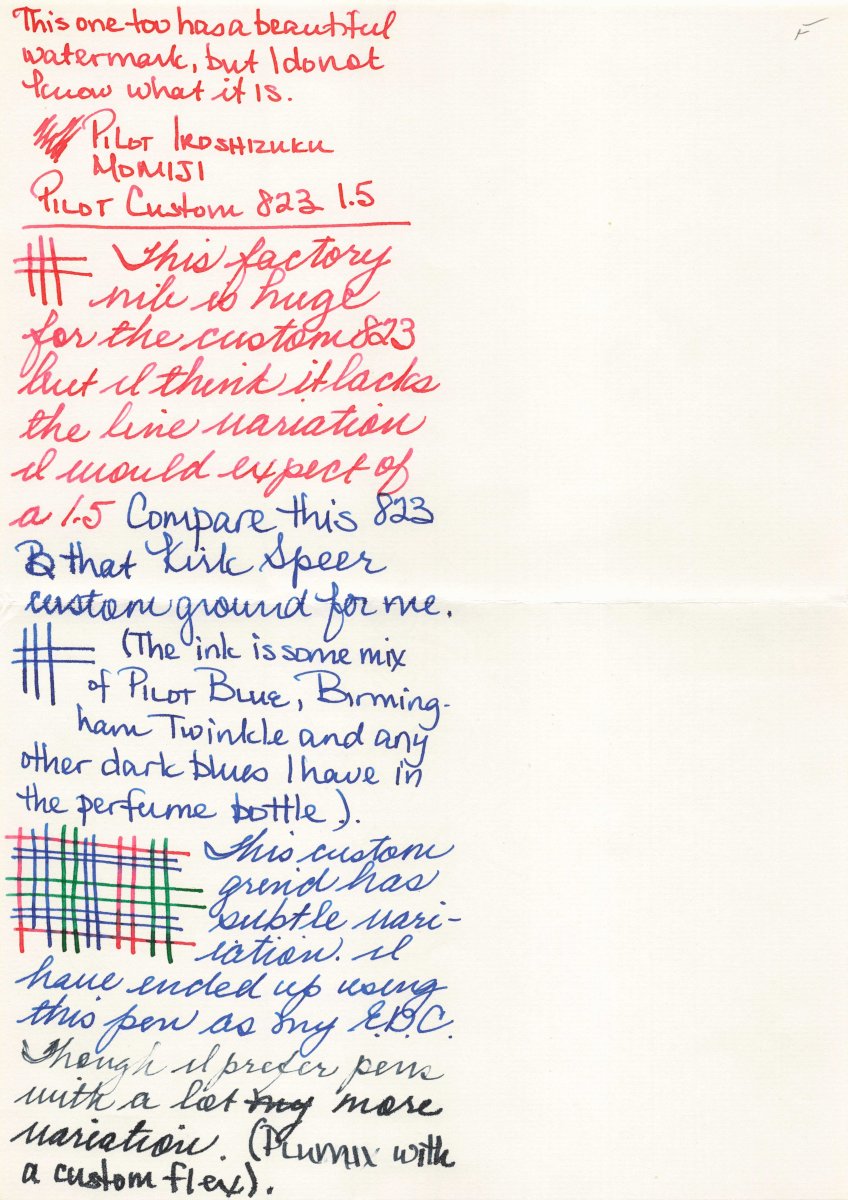 F
This one too has a beautiful
watermark, but I do not
know what it is.
PILOT IROSHIZUKU
MOMIJI
PILOT Custom 823 1.5
This factory
nib is huge
for the custom 823
but I think it lacks
the line variation
I would expect of
a 1.5 Compare this 823
that Kirk Speer
custom ground for me.
(The ink is some mix
of PILOT BLUE, Birming-
ham Twinkle and any
other dark blues I have in
the perfume bottle).
This custom
grind has
subtle vari-
iation. I
have ended up using
this pen as my E.D.C.
Though I prefer pens
with a lot my more
variation. (PLUMIX with
a custom flex).